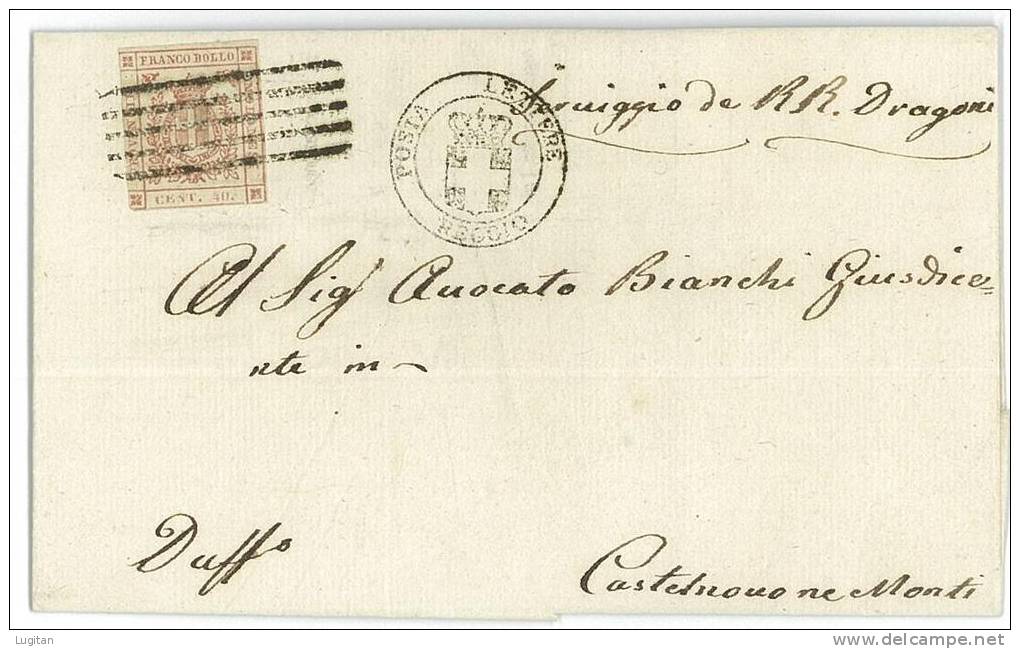 FRANCO BOLLO
CENT. 40.
POSTA LETTERE
REGGIO
Serviggio de RR. Dragoni
Al Sig Avocato Bianchi Giusdice=
nte in
Duff°
Castelnovo ne Monti
Lugitan
www.delcampe.net